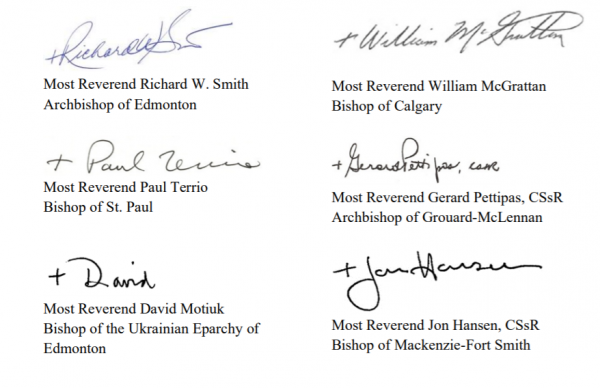 + Richard W Smith
Most Reverend Richard W. Smith
Archbishop of Edmonton
+ William McGrattan
Most Reverend William McGrattan
Bishop of Calgary
+ Paul Terrio
Most Reverend Paul Terrio
Bishop of St. Paul
+ Gerard Pettipas, cssr
Most Reverend Gerard Pettipas, CSsR
Archbishop of Grouard-McLennan
+ David
Most Reverend David Motiuk
Bishop of the Ukrainian Eparchy of
Edmonton
+ Jon Hansen
Most Reverend Jon Hansen, CSsR
Bishop of Mackenzie-Fort Smith